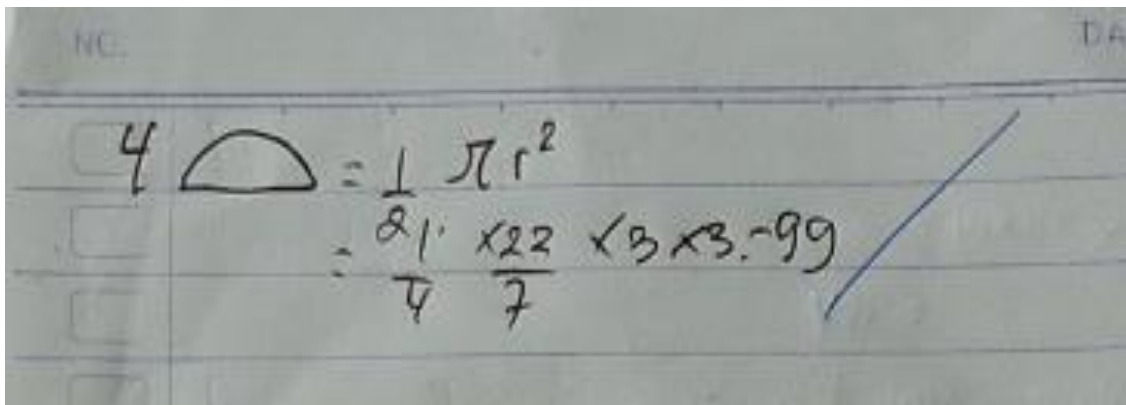 NO. DA
4 = 1/2 π r²
= 1/4 × 22/7 × 3 × 3 = 99